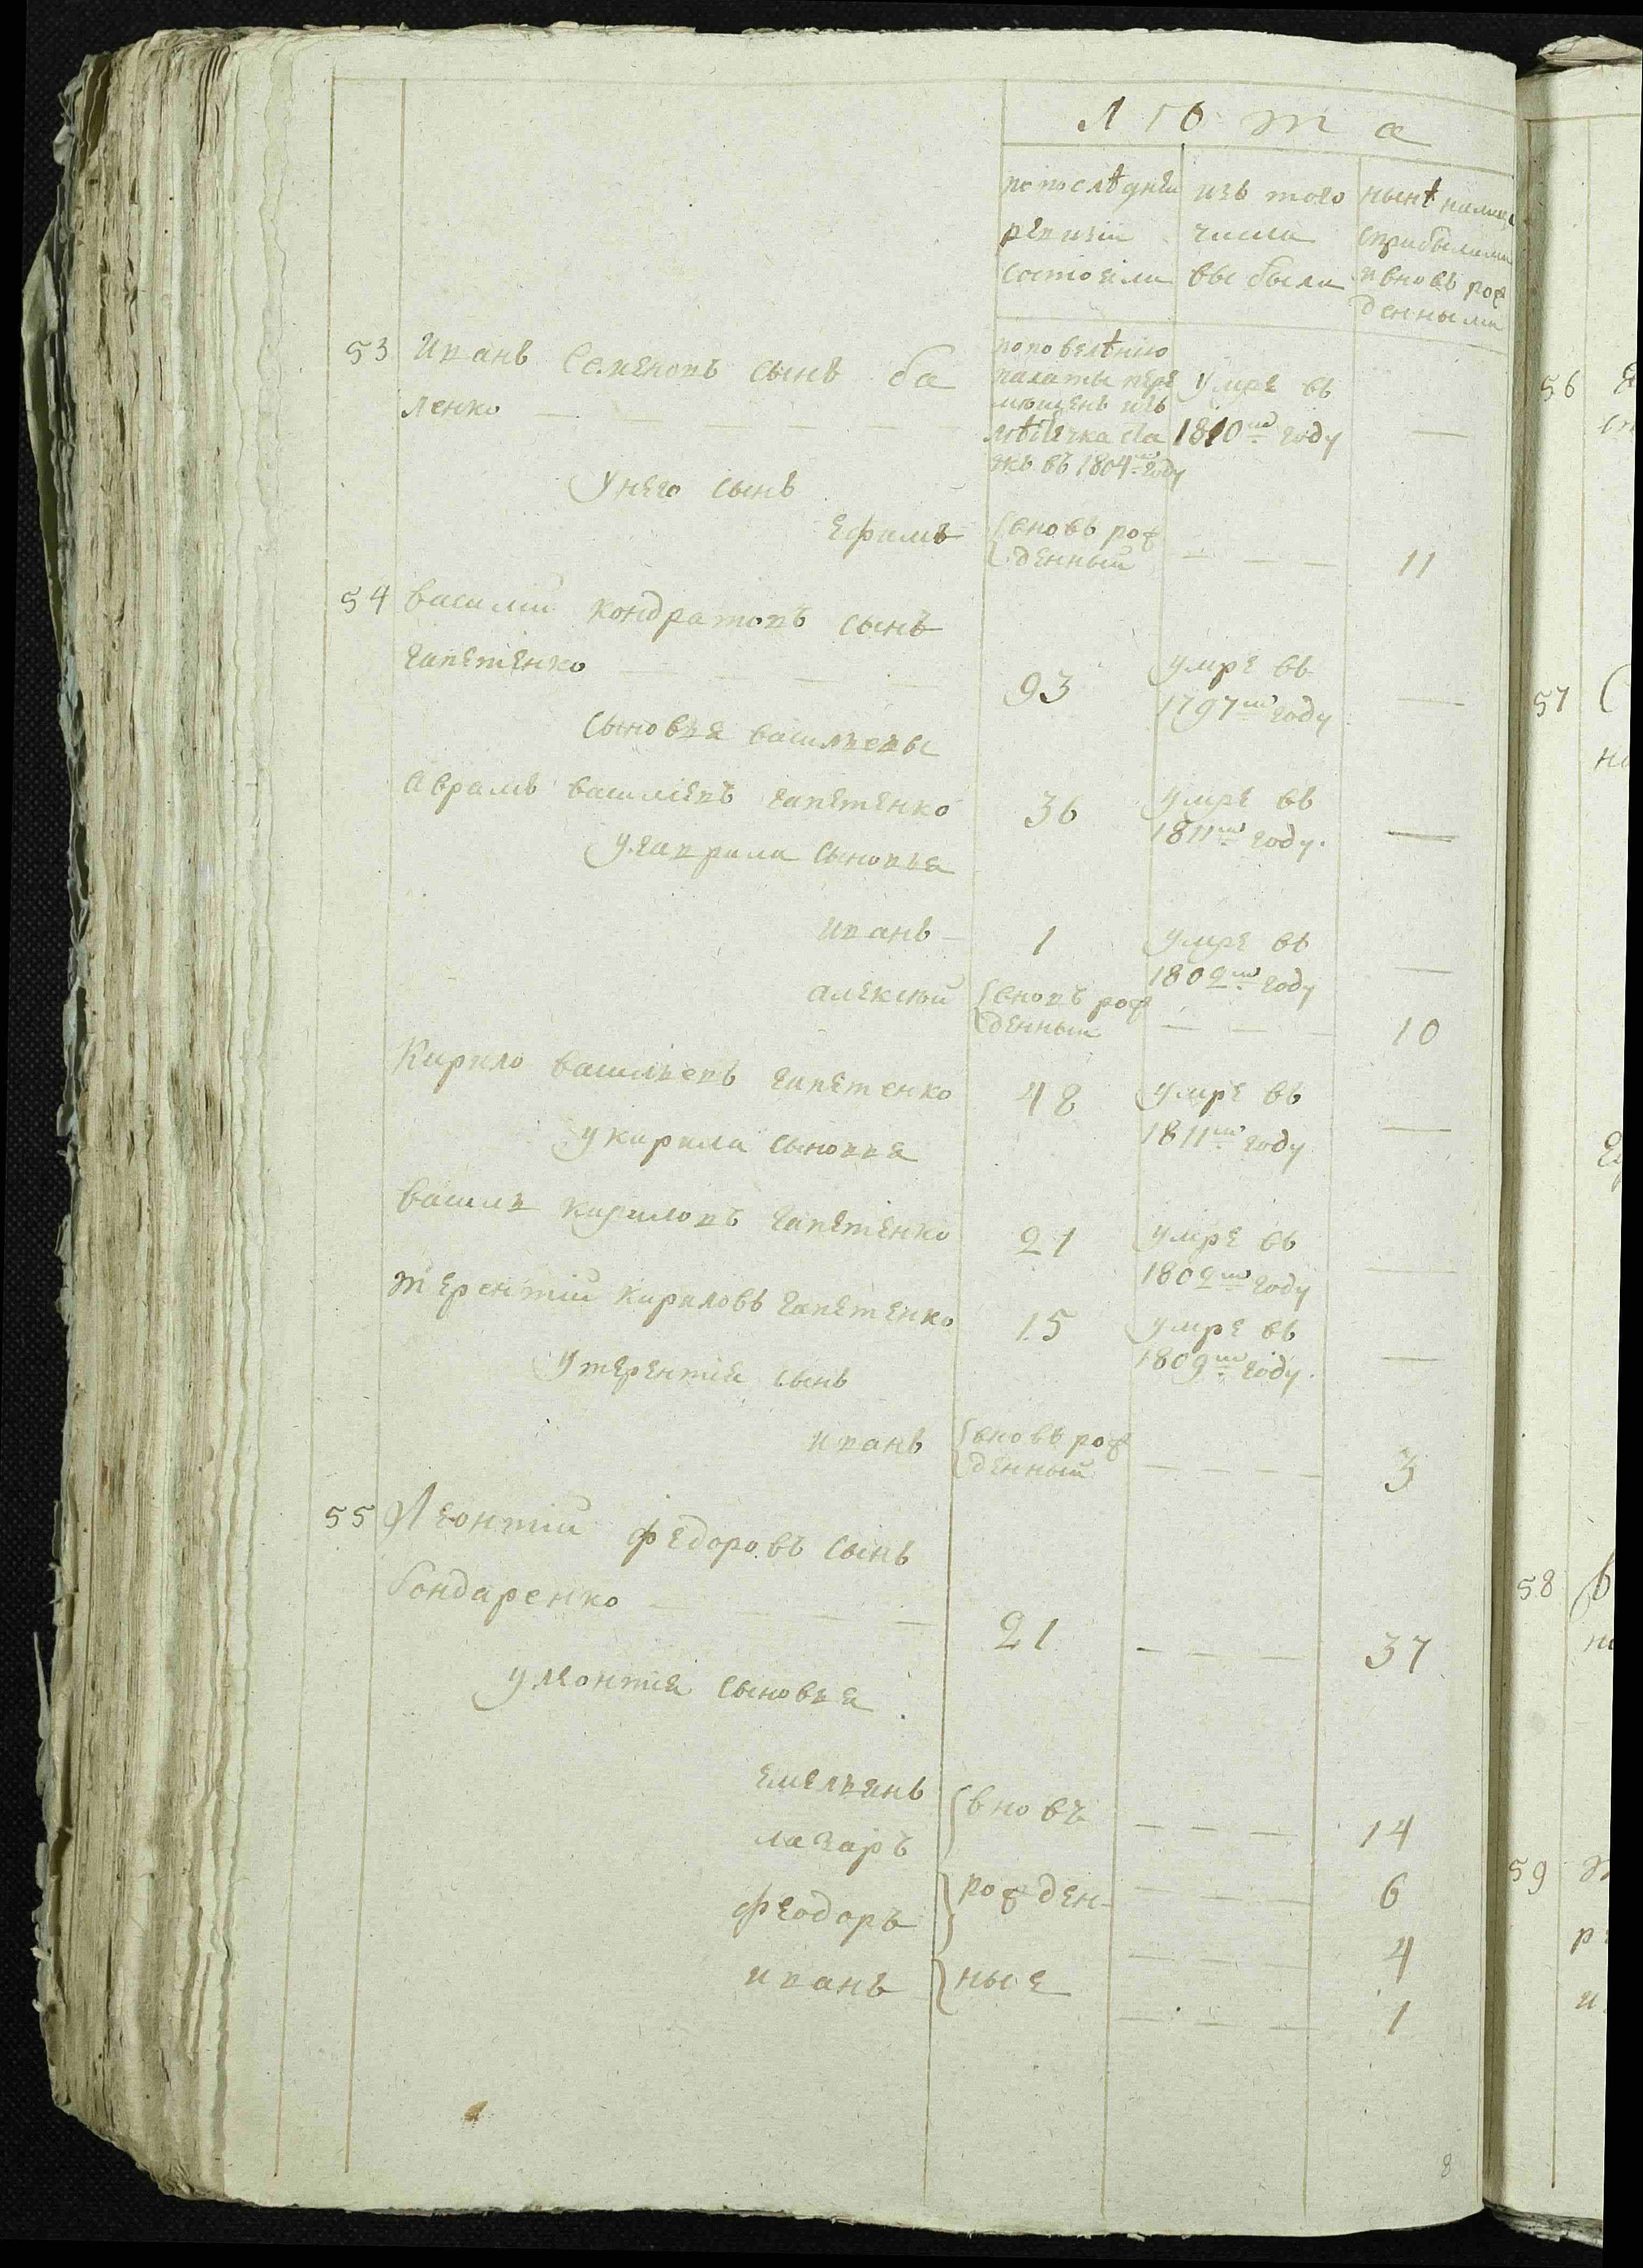 лѣта
попослѣдней
ревизіи
состояли
изъ того
числа
выбыли
нынѣ налицо
сприбылыми
и вновь рож
денными
53 Иванъ Семеновъ сынъ ба
ленко
поповелѣнію
палаты пере
мещенъ изъ
въ 1804мъ году
умре въ
1810мъ году —
Унего сынъ
Ефимъ вновь рож
денный — — — 11
54 василий кондратовъ сынъ
гапетенко 93 умре въ
1797мъ году —
сыновья васильевы
Аврамъ васильевъ гапетенко 36 умре въ
1811мъ году. —
У аврама сыновья
иванъ 1 умре въ
1809мъ году —
алексей вновь рож
денный — — — 10
Кирило васильевъ гапетенко 48 умре въ
1811мъ году —
У кирила сыновья
василь кириловъ гапетенко 21 умре въ
1809мъ году —
терентий кириловъ гапетенко 15 умре въ
1809мъ году. —
У терентія сынъ
иванъ вновь рож
денный — — — — 3
55 Леонтий федоровъ сынъ
бондаренко 21 — — — 37
У леонтія сыновья
емельянъ вновь — — — 14
лазаръ — — — 6
феодоръ рожден — — — 4
иванъ ные — — — 1
8
56
57
58
59